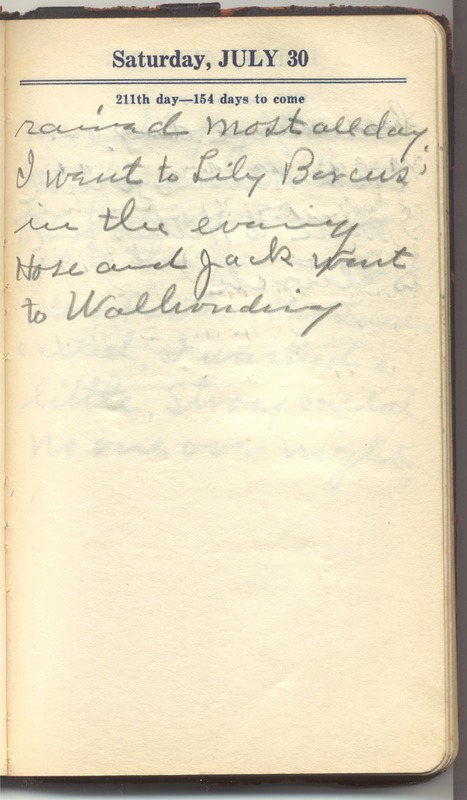 Saturday, JULY 30
211th day—154 days to come
rained most all day
I went to Lily Borcus'
in the evening
Hose and Jack went
to Walhonding